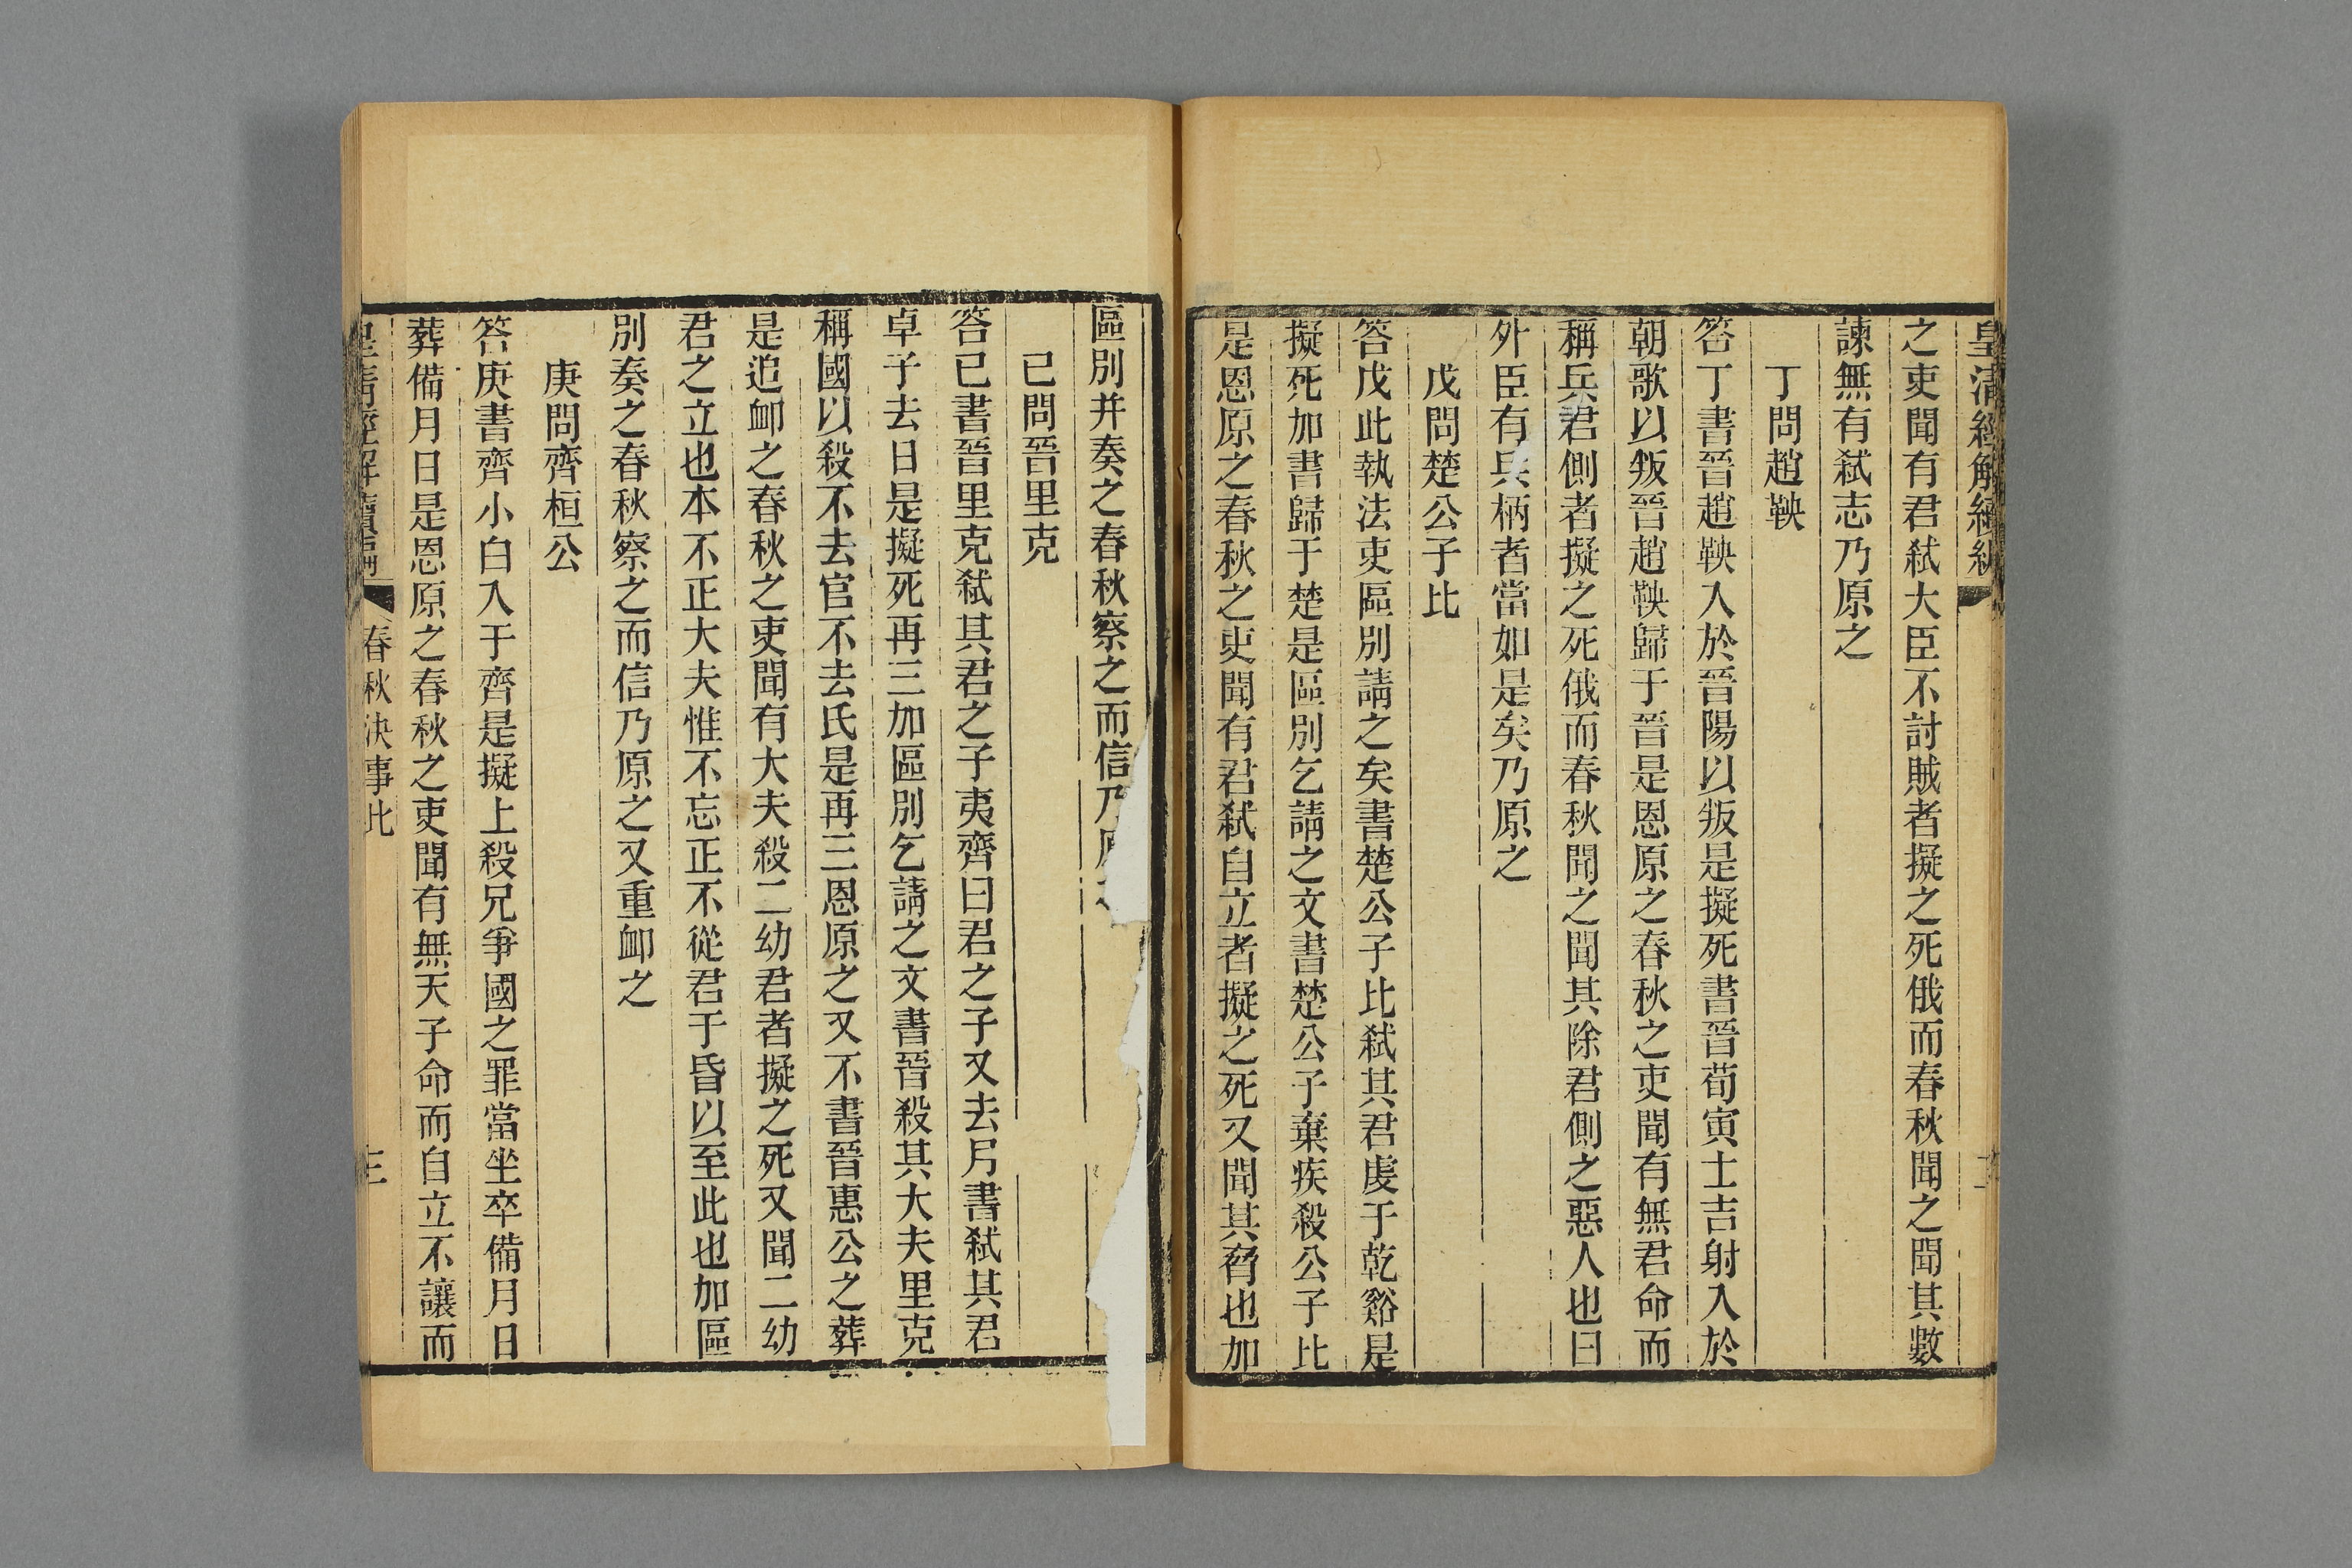 皇清經解續編
之吏聞有君弒大臣不討賊者擬之死俄而春秋聞之聞其數
諫無有弒志乃原之
丁問趙鞅
答丁書晉趙鞅入於晉陽以叛是擬死書晉荀寅士吉射入於
朝歌以叛晉趙鞅歸于晉是恩原之春秋之吏聞有無君命而
稱兵君側者擬之死俄而春秋聞之聞其除君側之惡人也曰
外臣有兵柄者當如是矣乃原之
戊問楚公子比
答戊此執法吏區別請之矣書楚公子比弒其君虔于乾谿是
擬死加書歸于楚是區別乞請之文書楚公子棄疾殺公子比
是恩原之春秋之吏聞有君弒自立者擬之死又聞其脅也加
區別并奏之春秋察之而信乃原
已問晉里克
答已書晉里克弒其君之子夷齊曰君之子又去月書弒其君
卓子去日是擬死再三加區別乞請之文書晉殺其大夫里克
稱國以殺不去官不去氏是再三恩原之又不書晉惠公之葬
是追卹之春秋之吏聞有大夫殺二幼君者擬之死又聞二幼
君之立也本不正大夫惟不忘正不從君于昏以至此也加區
別奏之春秋察之而信乃原之又重卹之
庚問齊桓公
答庚書齊小白入于齊是擬上殺兄爭國之罪當坐卒備月日
葬備月日是恩原之春秋之吏聞有無天子命而自立不讓而
皇清經解續編 春秋決事比 三